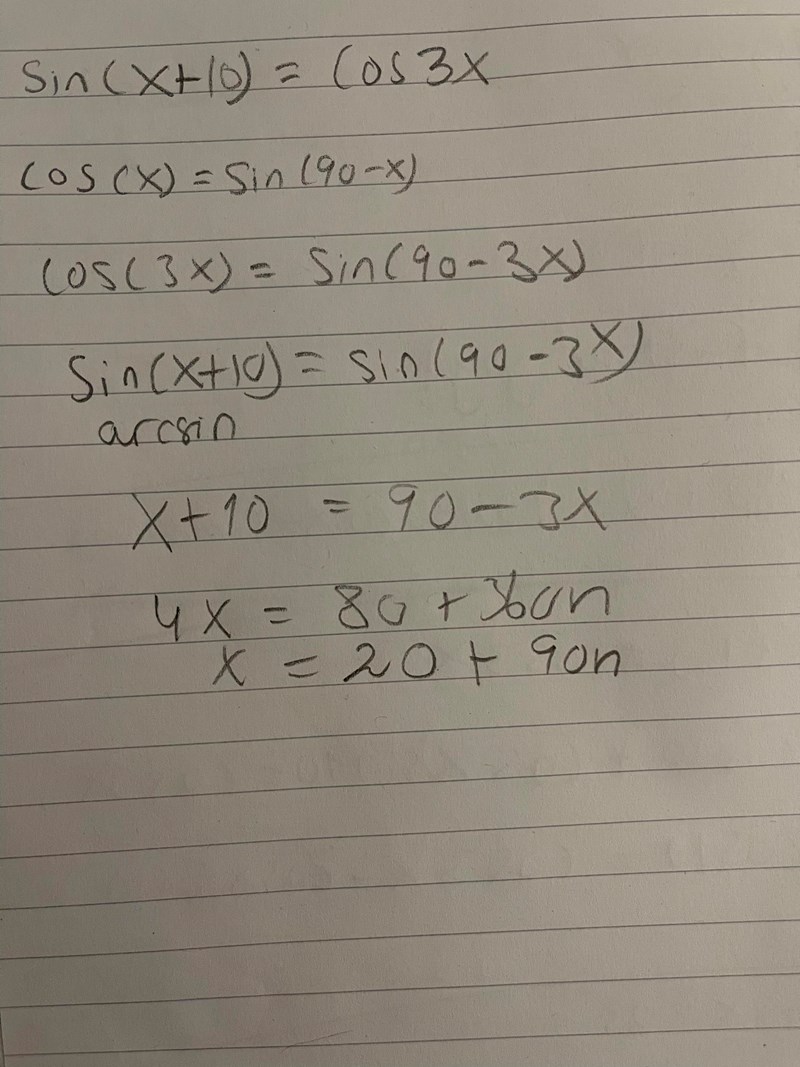 Sin(x+10) = Cos3x
cos(x) = Sin(90-x)
Cos(3x) = Sin(90-3x)
Sin(x+10) = sin(90-3x)
arcsin
x+10 = 90-3x
4x = 80+360n
x = 20+90n